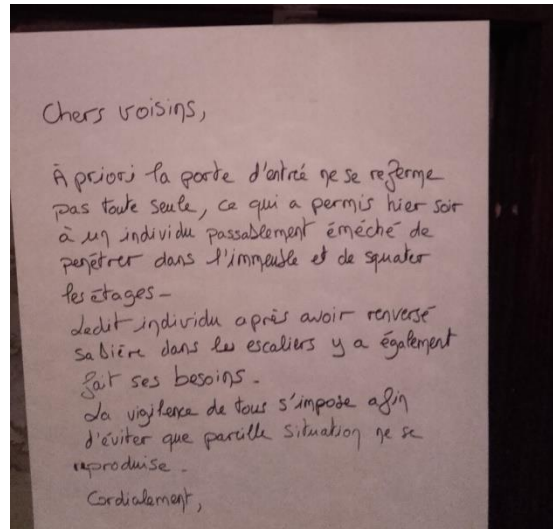 Chers voisins,
À priori la porte d'entrée ne se referme
pas toute seule, ce qui a permis hier soir
à un individu passablement éméché de
penétrer dans l'immeuble et de squater
les étages -
Ledit individu après avoir renversé
sa bière dans les escaliers y a également
fait ses besoins.
La vigilence de tous s'impose afin
d'éviter que pareille situation ne se
reproduise.
Cordialement,